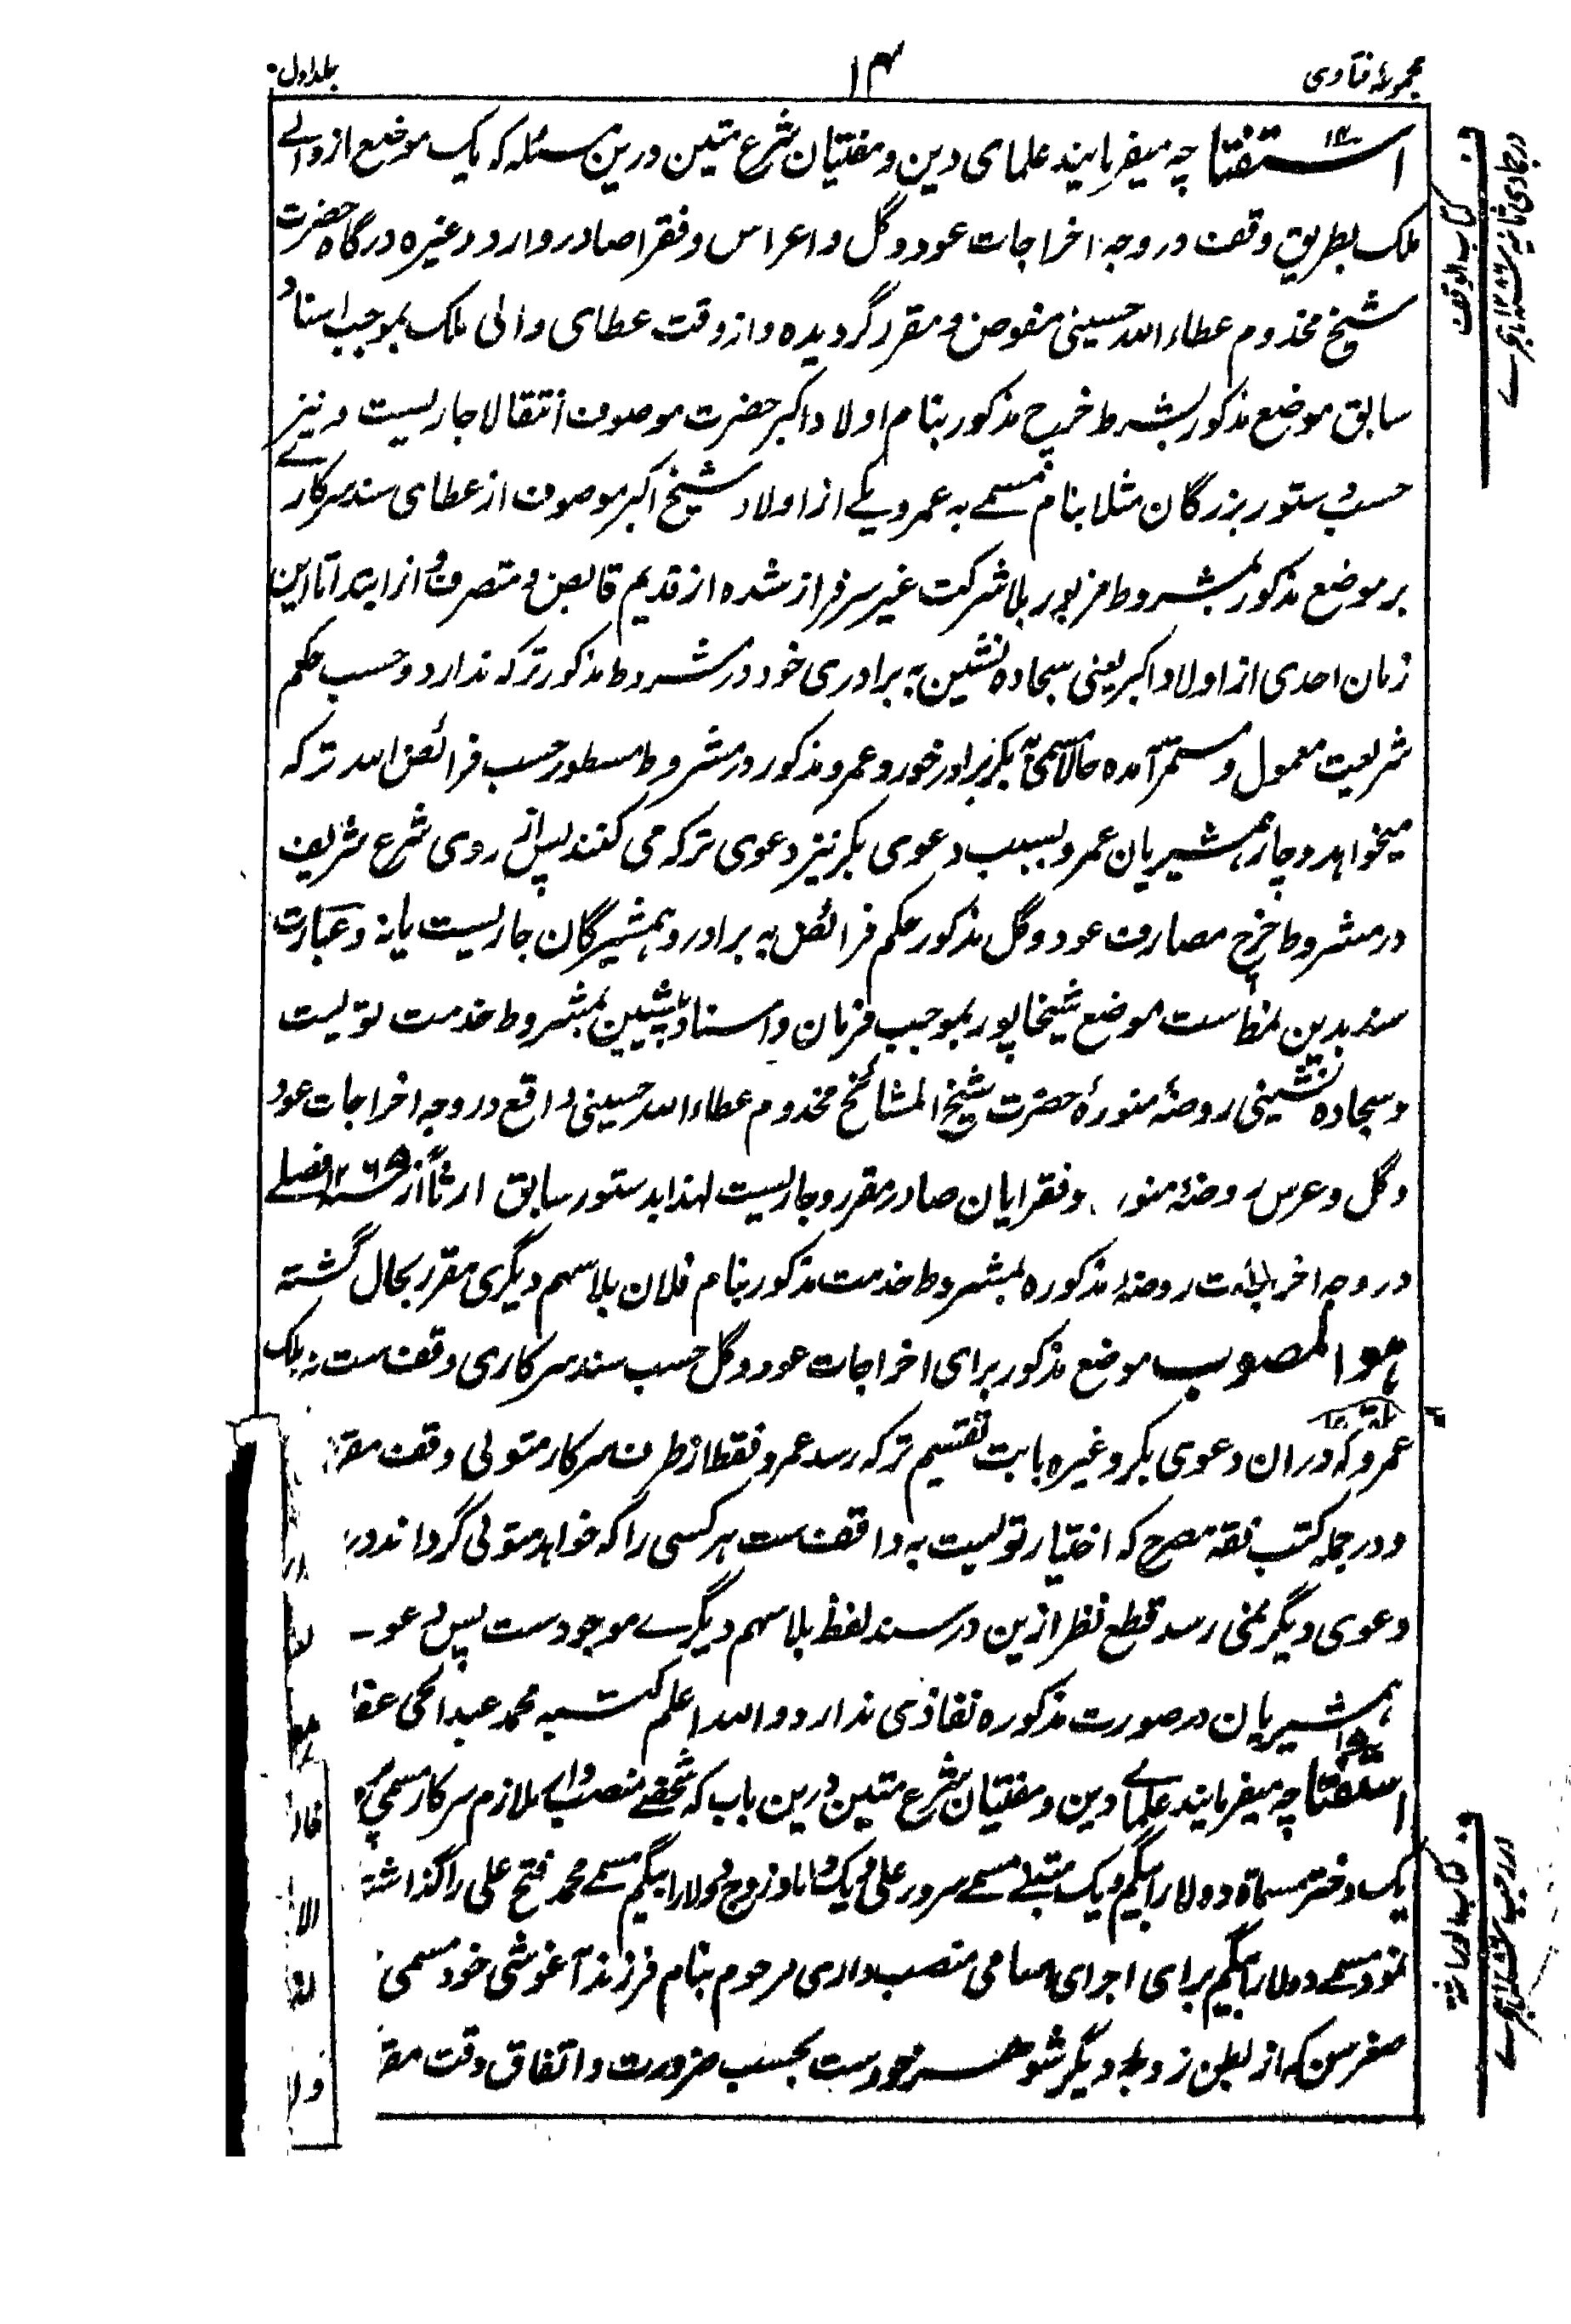 مجموعۂ فتاوی
۱۴
جلد اول
۱۴
استفتا چہ میفرمایند علمای دین و مفتیان شرع متین درین مسئلہ کہ یک موضع از والی
ملک بطریق وقف در وجہ اخراجات عود و گل و اعراس و فقرا صادر وارد وغیرہ درگاہ حضرت
شیخ مخدوم عطاء اللہ حسینی مفوض و مقرر گردیدہ و از وقت عطای والی ملک بموجب اسناد
سابق موضع مذکور بشرط خرچ مذکور بنام اولاد اکبر حضرت موصوف انتقالا جاریست و نیز
حسب دستور بزرگان مثلا بنام مسمے بہ عمرو یکے از اولاد شیخ اکبر موصوف از عطای سند سرکارے
بر موضع مذکور بمشروط مزبور بلا شرکت غیر سرفراز شدہ از قدیم قابض و متصرف و از ابتدا تا این
زمان احدی از اولاد اکبر یعنی سجادہ نشین بہ برادری خود در مشروط مذکور ترکہ ندارد و حسب حکم
شریعت معمول و مستمر آمدہ حالا مسمیٰ بکر برادر خورد عمرو مذکور در مشروط مسطور حسب فرائض اللہ ترکہ
میخواہد و چار ہمشیریان عمرو بسبب دعوی بکر نیز دعوی ترکہ می کنند پس از روی شرع شریف
در مشروط خرچ مصارف عود و گل مذکور حکم فرائض بہ برادر و ہمشیرگان جاریست یا نہ و عبارت
سند بدین نمط ست موضع شیخاپور بموجب فرمان و اسناد پیشین بمشروط خدمت تولیت
و سجادہ نشینی روضۂ منورۂ حضرت شیخ المشائخ مخدوم عطاء اللہ حسینی واقع در وجہ اخراجات عود
و گل و عرس روضۂ منورہ و فقرایان صادر مقرر و جاریست لہذا بدستور سابق ارثاً از ۱۲۶۵ فصلے
در وجہ اخراجات روضۂ مذکورہ بمشروط خدمت مذکور بنام فلان بلا سہم دیگری مقرر بحال گشتہ
ہو المصوب موضع مذکور برای اخراجات عود و گل حسب سند سرکاری وقف ست نہ ملک
عمرو کہ دران دعوی بکر وغیرہ بابت تقسیم ترکہ رسد عمرو فقط از طرف سرکار متولی وقف
و در جملہ کتب فقہ مصرح کہ اختیار تولیت بہ واقف ست ہر کسی را کہ خواہد متولی گرداند در
دعوی دیگر نمی رسد قطع نظر ازین در سند لفظ بلا سہم دیگرے موجودست پس
ہمشیریان در صورت مذکورہ نفاذی ندارد واللہ اعلم کتبہ محمد عبدالحی
۱۵
استفتا چہ میفرمایند علماے دین و مفتیان شرع متین درین باب کہ شخصے منصب دار ملازم سرکار مسمی
یک دختر مسماۃ دولارا بیگم و یک متبنے مسمے سرور علی و یک داماد زوج دولارا بیگم مسمے محمد فتح علی را گذاشتہ
نمود مسمے دولارا بیگم برای اجرای اسامی منصب داری مرحوم بنام فرزند آغوشی خود مسمی
صغرسن کہ از بطن زوجہ دیگر شوہر خودست بحسب ضرورت و اتفاق وقت
کتاب الوقف
در جمادی الثانیہ ۱۲۸۶ ہجرے
کتاب الوراثۃ